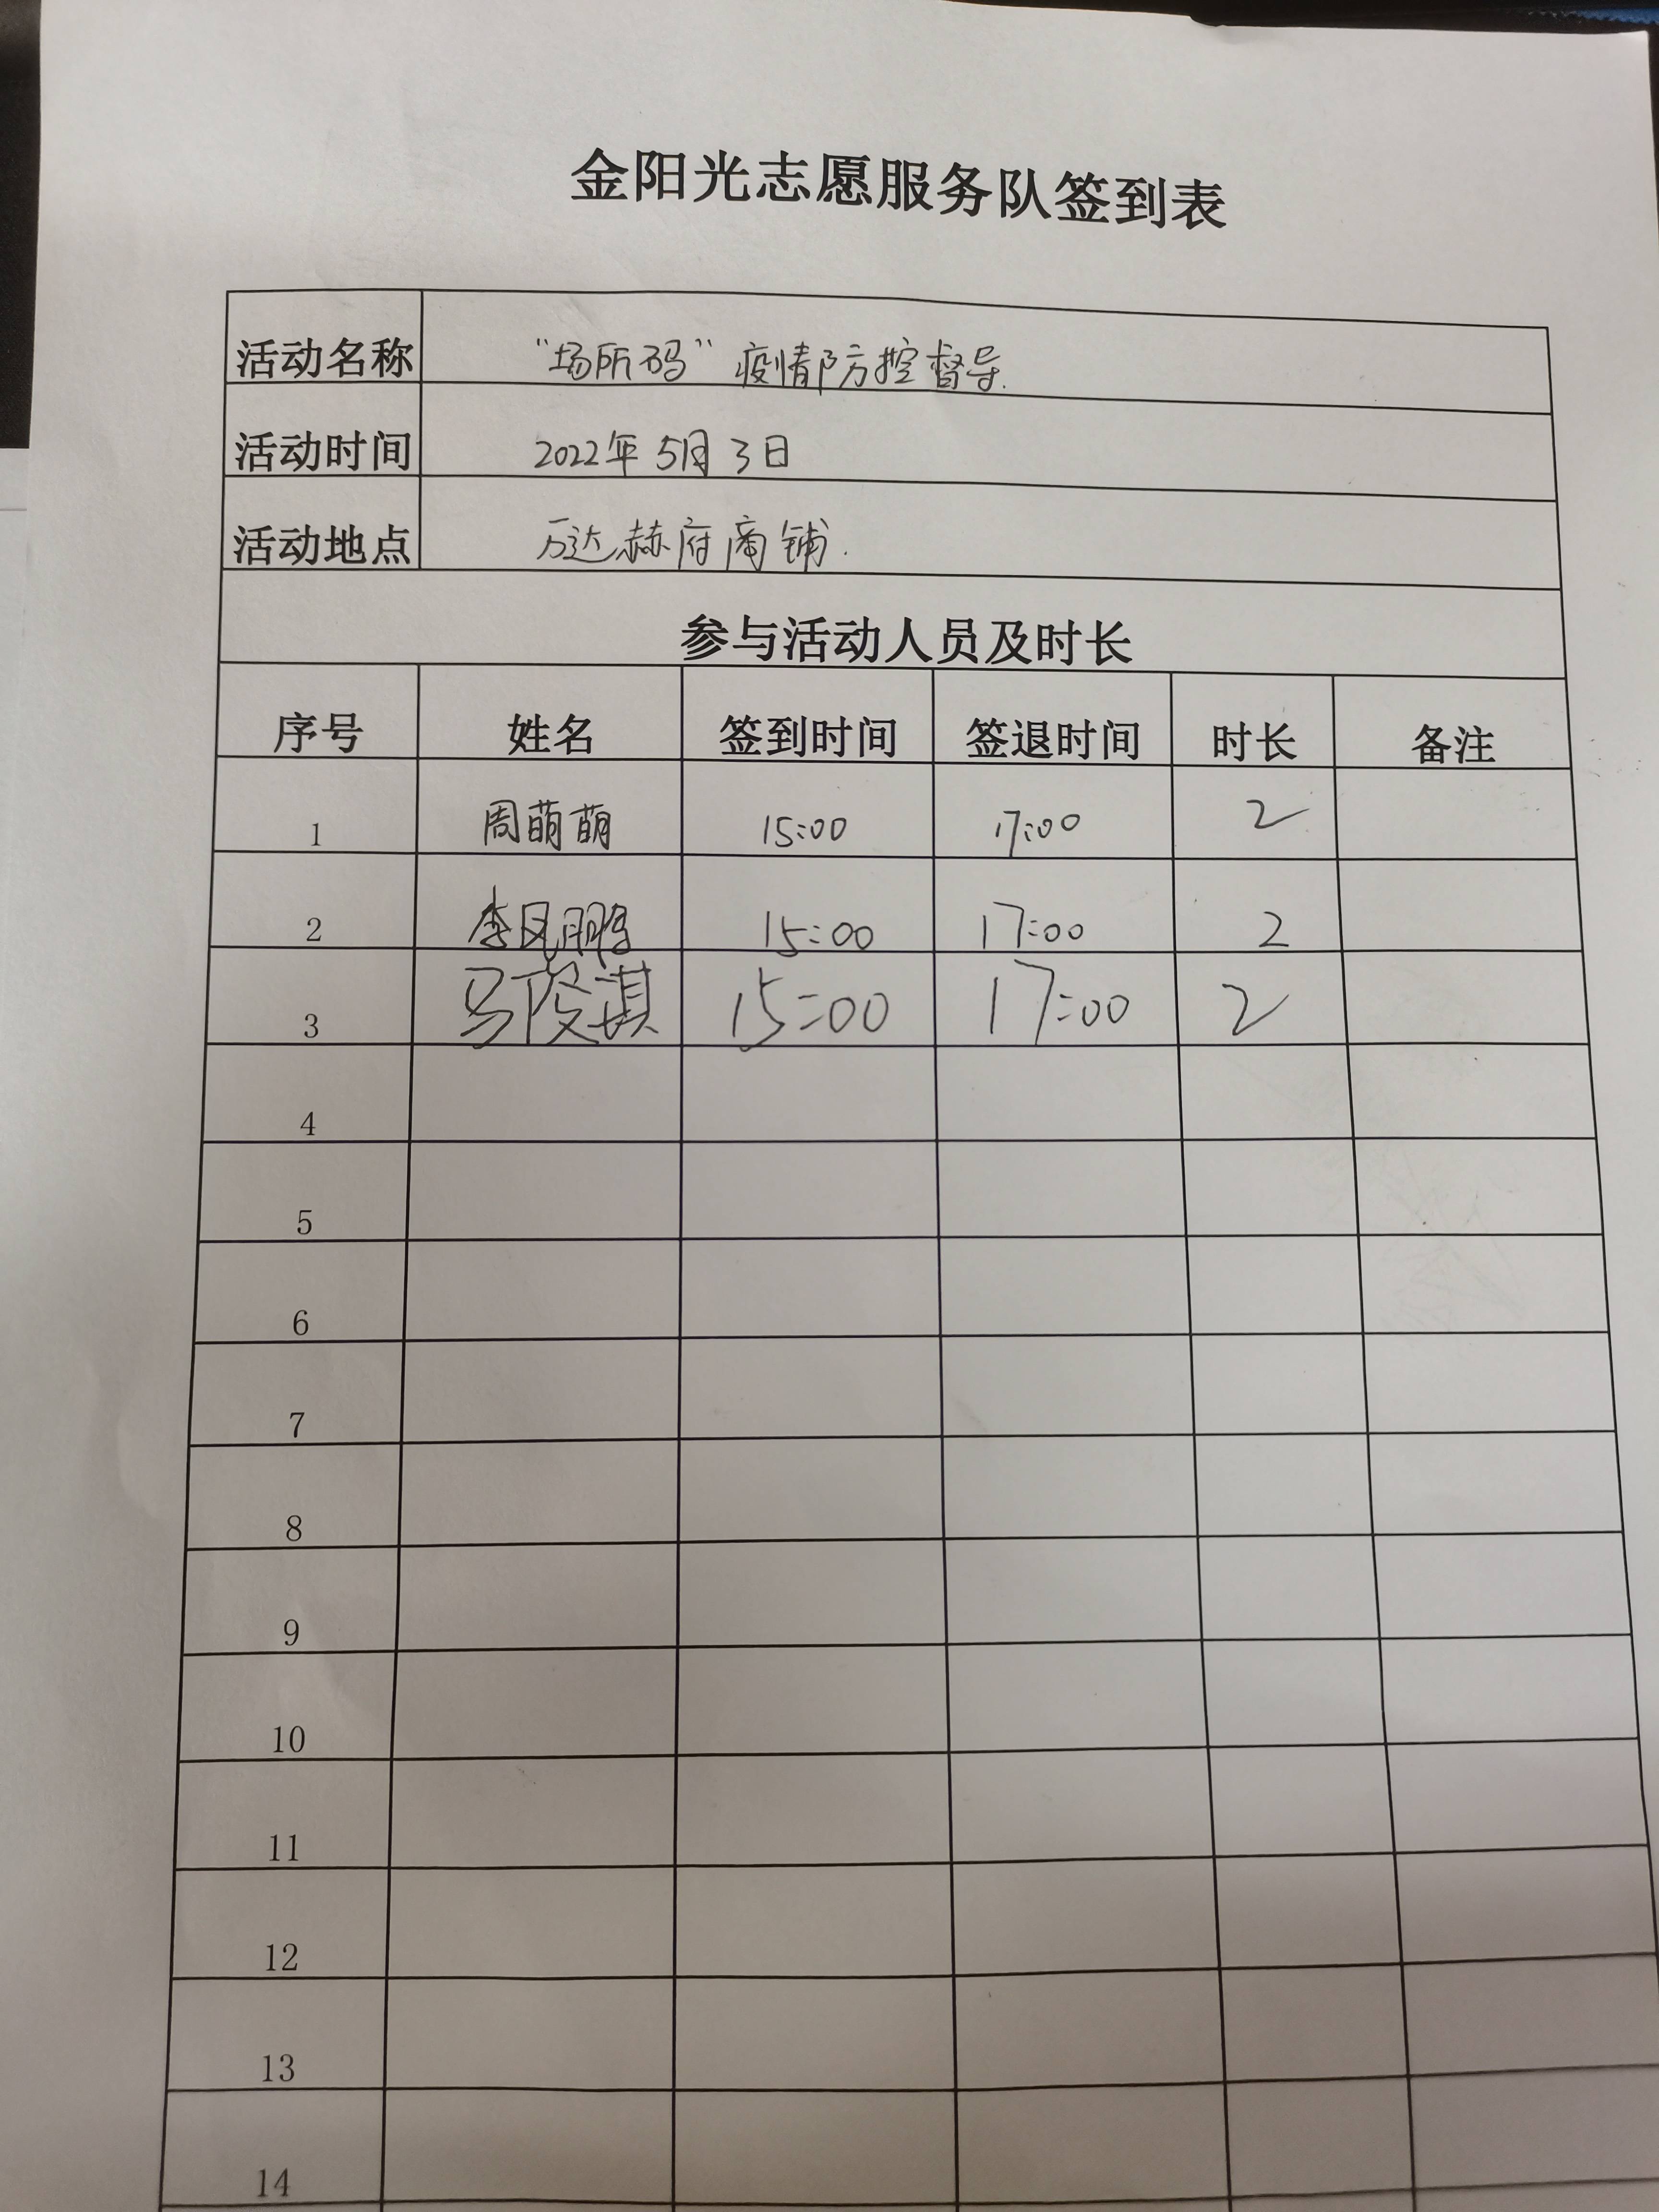 金阳光志愿服务队签到表
活动名称 “场所码”疫情防控督导.
活动时间 2022年5月3日
活动地点 万达赫府商铺.
参与活动人员及时长
序号 姓名 签到时间 签退时间 时长 备注
1 周萌萌 15:00 17:00 2
2 李凤鹏 15:00 17:00 2
3 15:00 17:00 2
4
5
6
7
8
9
10
11
12
13
14